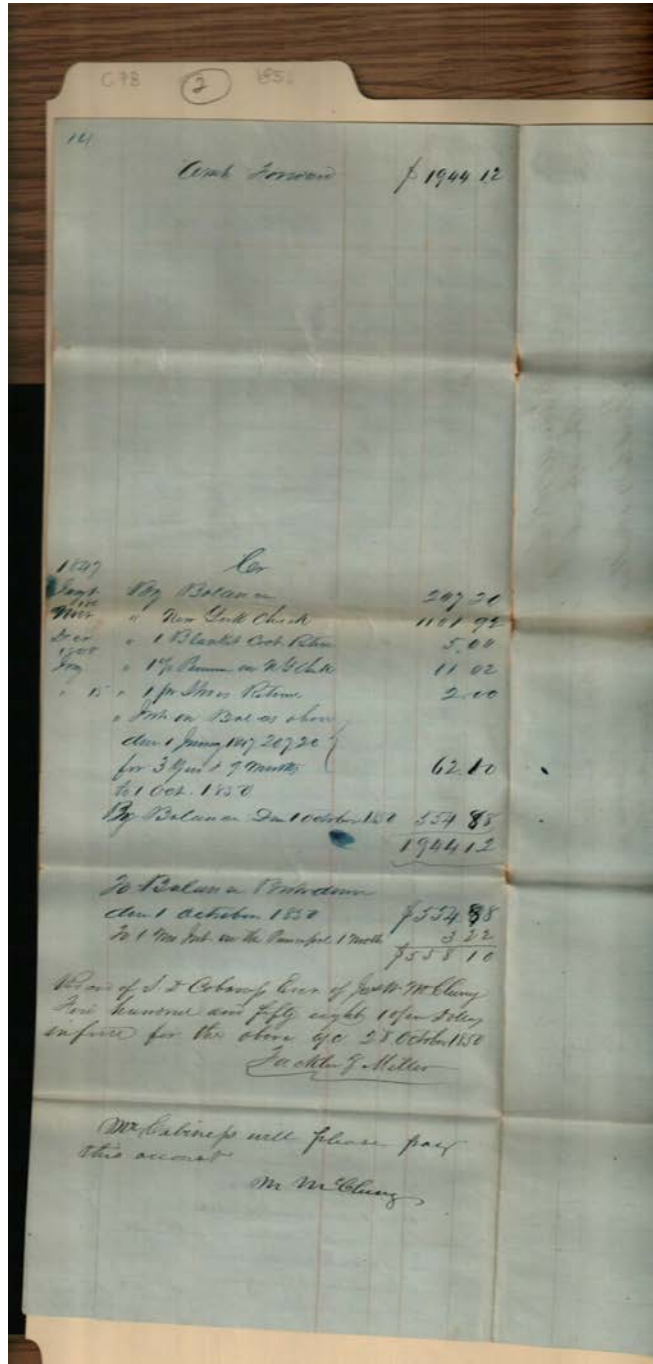 C 78 2 185
14
Amt Forward $1944 12
1847 Cr
By Balance 207 20
" New York Check 1101 92
" 1 Blanket Coat Return 5.00
1848
" 1 % Prem on N Y Check 11 02
" 15 " 1 pr Shoes Return 2.00
" Int on Bal as above
due 1 January 1847 207 20
for 3 Years & 9 Months 62.10
to 1 Oct. 1850
By Balance Due 1 October 1850 554 88
1944 12
To Balance Brot down
due 1 October 1850 $554 88
To 1 Mo Int on the Principal 1 Month 3 22
$558 10
of Jas W McClung
Five hundred and fifty eight 10/100 Dollars
in full for the above a/c 28 October 1850
Fackler & Miller
Mr Cabiness will please pay
this account
M McClung